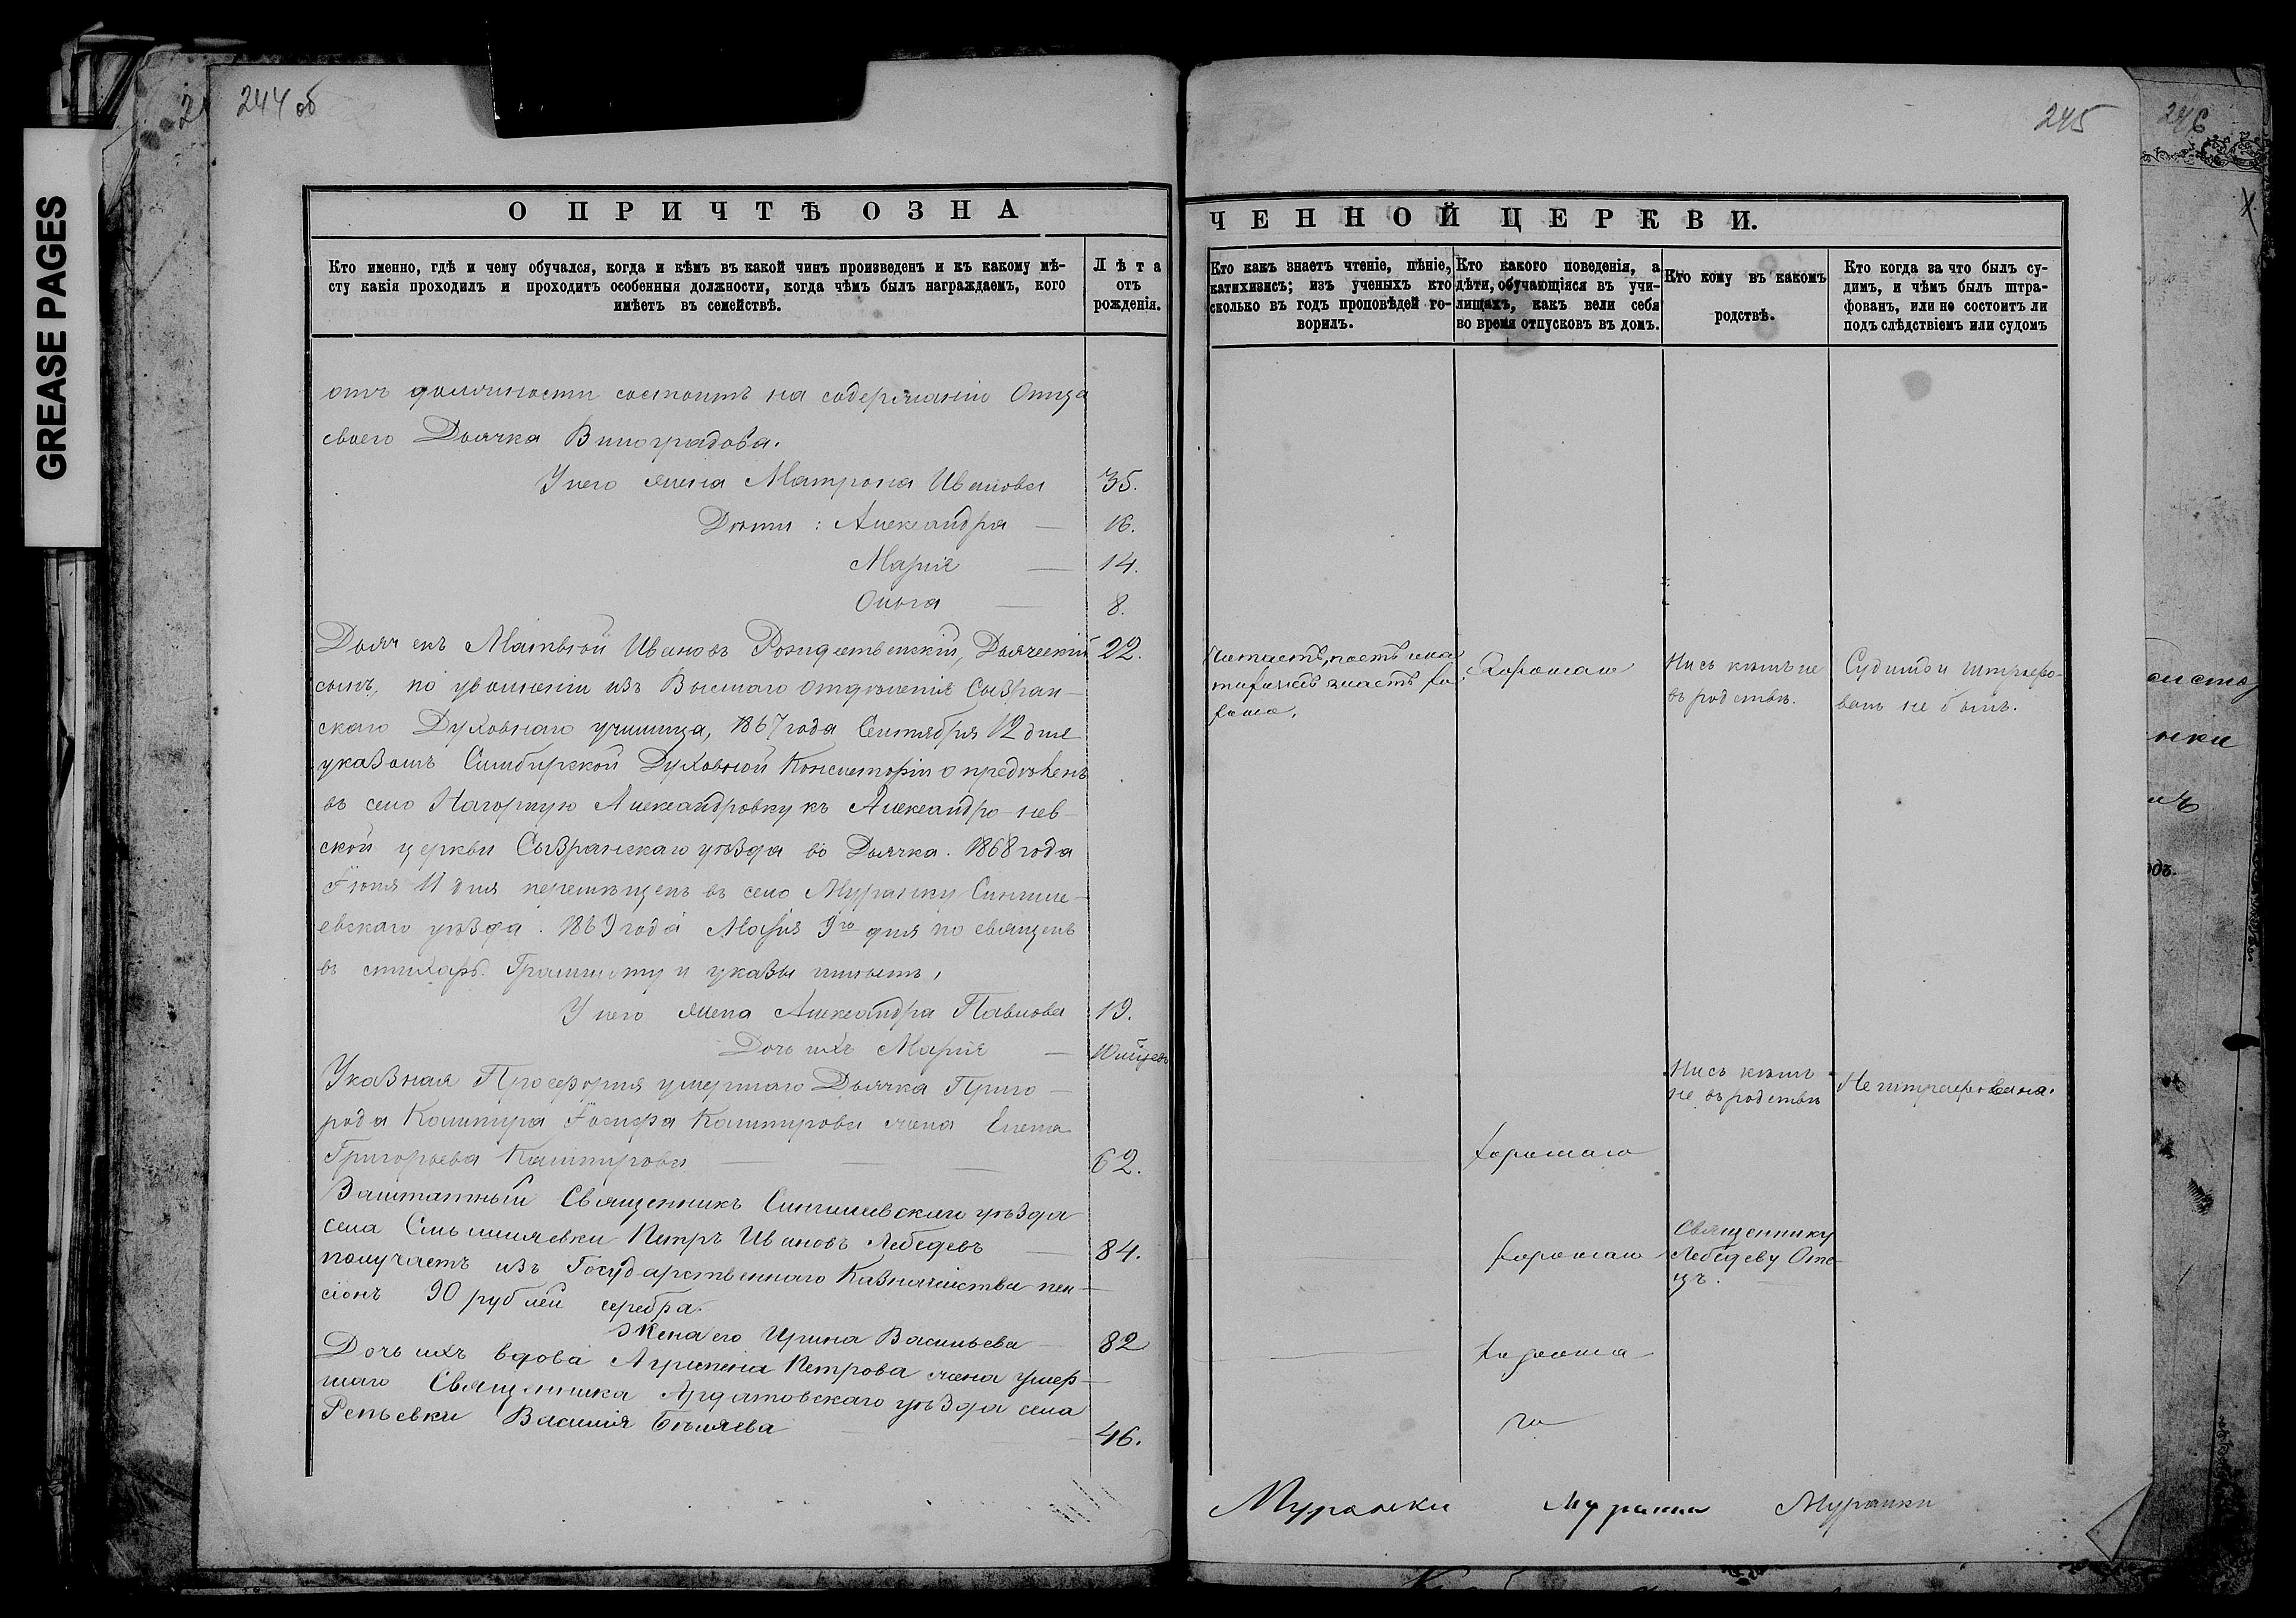 GREASE PAGES
244 об
245
246
О ПРИЧТѢ ОЗНА
ЧЕННОЙ ЦЕРКВИ.
Кто именно, гдѣ и чему обучался, когда и кѣмъ въ какой чинъ произведенъ и къ какому мѣ-
сту какія проходилъ и проходитъ особенныя должности, когда чѣмъ былъ награждаемъ, кого
имѣетъ въ семействѣ.
Лѣта
отъ
рожденія.
Кто какъ знаетъ чтеніе, пѣніе,
катихизисъ; изъ ученыхъ кто
сколько въ годъ проповѣдей го-
ворилъ.
Кто какого поведенія, а
дѣти, обучающіяся въ учи-
лищахъ, какъ вели себя
во время отпусковъ въ домъ.
Кто кому въ какомъ
родствѣ.
Кто когда за что былъ су-
димъ, и чѣмъ былъ штра-
фованъ, или не состоитъ ли
подъ слѣдствіемъ или судомъ
отъ должности состоитъ на содержаніи Отца
своего Дьячка Виноградова.
У него жена Матрона Иванова 35.
Дѣти: Александра — 16.
Марія — 14.
Ольга — 8.
Дьячекъ Матвѣй Ивановъ Рождественскій, Дьяческій 22.
сынъ, по увольненіи изъ Высшаго отдѣленія Сызран-
скаго Духовнаго училища, 1867 года Сентября 12 дня
указомъ Симбирской Духовной Консисторіи опредѣленъ
въ село Нагорную Александровку къ Александро-нев-
ской церкви Сызранскаго уѣзда во Дьячка. 1868 года
Іюня 11 дня перемѣщенъ въ село Муранку Сингиле-
евскаго уѣзда. 1869 года Марта 9го дня посвященъ
въ стихарь. Грамматту и указы имѣетъ,
У него жена Александра Павлова 19.
Дочь ихъ Марія — 10 мѣсяц.
Указная Просфорня умершаго Дьячка Приго-
рода Кашпира Іосифа Кашпирова жена Елена
Григорьева Кашпирова — 62.
Заштатный Священникъ Сингилеевскаго уѣзда
села Смышляевки Петръ Ивановъ Лебедевъ 84.
получаетъ изъ Государственнаго Казначейства пен-
сіонъ 90 рублей серебра.
Жена его Ирина Васильева 82
Дочь ихъ вдова Агрипена Петрова жена умер-
шаго Священника Ардатовскаго уѣзда села
Репьевки Василія Бѣляева 46.
Читаетъ, поетъ и ка-
тихизисъ знаетъ хо-
рошо.
Хорошаго
Ни съ кѣмъ не
въ родствѣ.
Судимъ и штрафо-
ванъ не былъ.
Ни съ кѣмъ
не въ родствѣ
Не штрафована.
хорошаго
хорошаго
Священнику
Лебедеву Оте-
цъ.
хороша
го
Муранки Муранки Муранки